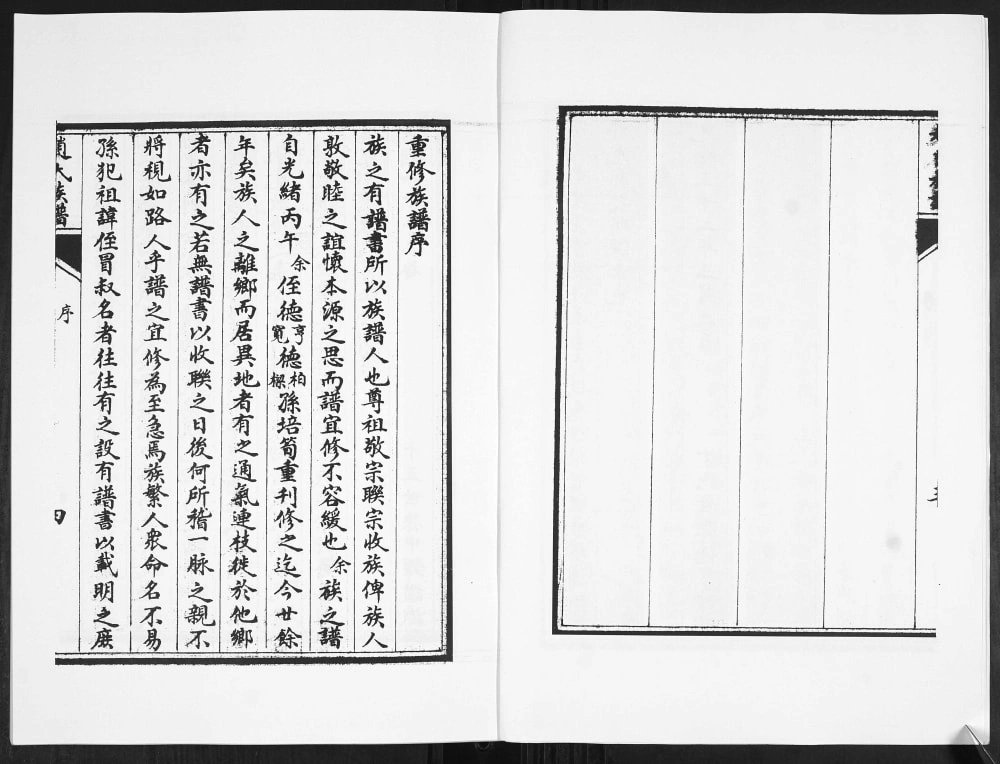 重修族譜序
族之有譜書所以族譜人也尊祖敬宗聯宗收族俾族人
敦敬睦之誼懷本源之思而譜宜修不容緩也余族之譜
自光緒丙午余侄德亨寬德柏樑孫培筍重刊修之迄今廿餘
年矣族人之離鄉而居異地者有之通氣連枝徙於他鄉
者亦有之若無譜書以收聯之日後何所稽一脉之親不
將視如路人乎譜之宜修為至急焉族繁人衆命名不易
孫犯祖諱侄冒叔名者往往有之設有譜書以載明之庶
氏族譜
序
四